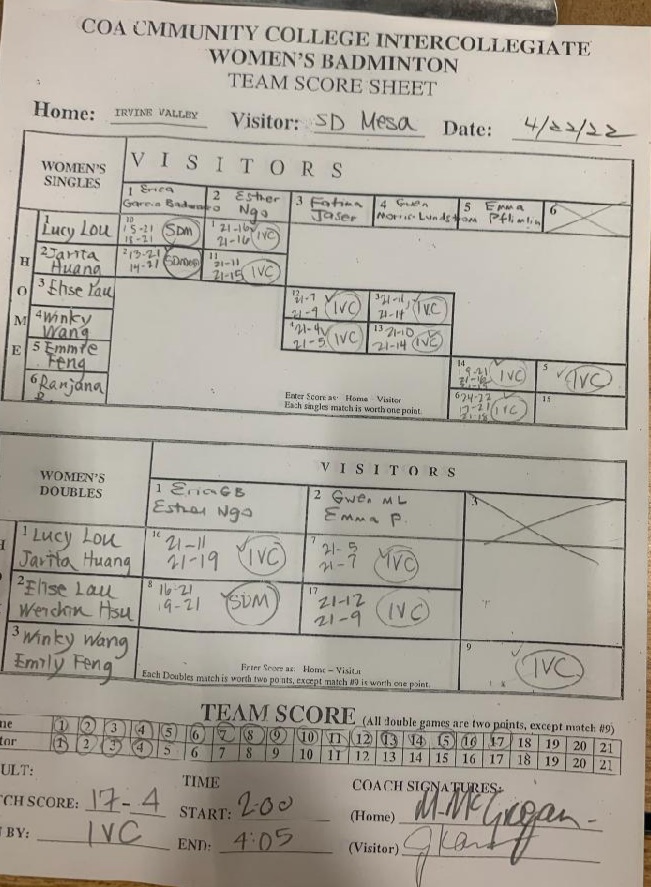 COA CMMUNITY COLLEGE INTERCOLLEGIATE
WOMEN'S BADMINTON
TEAM SCORE SHEET
Home: IRVINE VALLEY Visitor: SD Mesa Date: 4/22/22
WOMEN'S SINGLES
VISITORS
1 Erica
2 Esther Ngo
3 Fatima Jaser
4 Gwen Morris-Lundstrom
5 Emma Pflimlin
6
HOME
1 Lucy Lou
10 15-21 SDM
15-21
1 21-16 IVC
21-16
2 Jarita Huang
2 13-21
14-21
11 21-11
21-15 IVC
3 Elise Lau
12 21-7
21-9 IVC
3 21-11
21-14 IVC
4 Winky Wang
4 21-4
21-5 IVC
13 21-10
21-14 IVC
5 Emmie Feng
14
19-21 IVC
5 IVC
6 Ranjana
6 24-22
17-21 IVC
15
Enter Score as: Home - Visitor
Each singles match is worth one point.
WOMEN'S DOUBLES
VISITORS
1 Erica GB
Esther Ngo
2 Gwen ML
Emma P.
3
1 Lucy Lou
Jarita Huang
16 21-11
21-19 IVC
7 21-5
21-7 IVC
2 Elise Lau
Weichin Hsu
8 16-21
19-21 SDM
17 21-12
21-9 IVC
3 Winky Wang
Emily Feng
9 IVC
Enter Score as: Home - Visitor
Each Doubles match is worth two points, except match #9 is worth one point.
TEAM SCORE (All double games are two points, except match #9)
me 1 2 3 4 5 6 7 8 9 10 11 12 13 14 15 16 17 18 19 20 21
tor 1 2 3 4 5 6 7 8 9 10 11 12 13 14 15 16 17 18 19 20 21
ULT:
TIME
COACH SIGNATURES:
TCH SCORE: 17-4
START: 2:00
(Home) M. McGrogan
BY: IVC
END: 4:05
(Visitor)